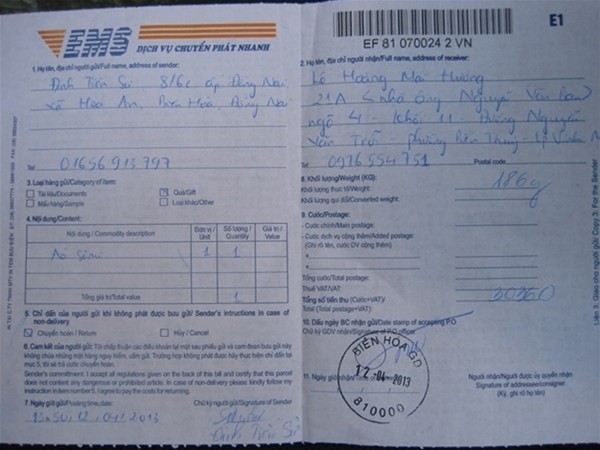 EMS
DỊCH VỤ CHUYỂN PHÁT NHANH
E1
EF 81 070024 2 VN
1. Họ tên, địa chỉ người gửi/Full name, address of sender:
Đinh Tiến Sử 8/6c ấp Đồng Nai
xã Hóa An, Biên Hoà, Đồng Nai
Tel 01656 913 797
2. Họ tên, địa chỉ người nhận/Full name, address of receiver:
Lê Hoàng Mai Hương
21A (nhà ông Nguyễn Văn
ngõ 4 - Khối 11 - Đường Nguyễn
Văn Trỗi - phường Bến Thủy - Tp Vinh N
Tel: 0976554751 Postal code
3. Loại hàng gửi/Category of item:
Tài liệu/Documents Quà/Gift
Mẫu hàng/Sample Loại khác/Other
4. Nội dung/Content:
Nội dung / Commodity description Đơn vị / Unit Số lượng / Quantity Giá trị / Value
Áo 1 1
Tổng giá trị/Total value 1
5. Chỉ dẫn của người gửi khi không phát được bưu gửi/ Sender's instructions in case of
non-delivery
Chuyển hoàn / Return Hủy / Cancel
6. Cam kết của người gửi: Tôi chấp thuận các điều khoản tại mặt sau phiếu gửi và cam đoan bưu gửi này
không chứa những mặt hàng nguy hiểm, cấm gửi. Trường hợp không phát được hãy thực hiện chỉ dẫn tại
mục 5, tôi sẽ trả cước chuyển hoàn.
Sender's commitment: I accept all regulations given on the back of this bill and certify that this parcel
does not contain any dangerous or prohibited article. In case of non-delivery please kindly follow my
instruction in item number5, I agree to pay the costs for returning.
7. Ngày giờ gửi/Posting time, date: Chữ ký người gửi/Signature of Sender
12/04/2013
Đinh Tiến Sử
8. Khối lượng/Weight (KG):
Khối lượng thực tế/Weight: 186g
Khối lượng qui đổi/Converted weight:
9. Cước/Postage:
- Cước chính/Main postage:
- Cước dịch vụ cộng thêm/Added postage:
(Ghi rõ tên, cước DV cộng thêm)
Tổng cước/Total postage:
Thuế VAT/VAT:
Tổng số tiền thu (Cước+VAT)/ 30360
Total (Postage+VAT):
10. Dấu ngày BC nhận gửi/Date stamp of accepting P.O
Chữ ký GDV nhận/Signature of P.O officer
BIÊN HÒA GD
12-04-2013
810000
11. Ngày giờ nhận/
Người nhận/Người được ủy quyền nhận
Signature of addressee/consigner
(Ký, ghi rõ họ tên)
Liên 3: Giao cho người gửi/ Copy 3: For the Sender